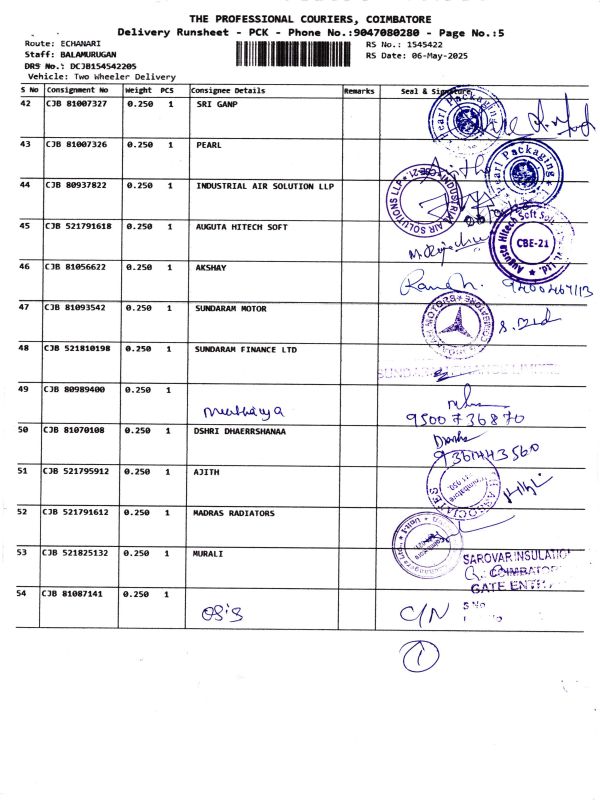 THE PROFESSIONAL COURIERS, COIMBATORE
Delivery Runsheet - PCK - Phone No.:9047080280 - Page No.:5
Route: ECHANARI
RS No.: 1545422
Staff: BALAMURUGAN
RS Date: 06-May-2025
DRS No.: DCJB154542205
Vehicle: Two Wheeler Delivery
S No Consignment No Weight PCS Consignee Details Remarks Seal & Signature
42 CJB 81007327 0.250 1 SRI GANP
Pearl Packaging
43 CJB 81007326 0.250 1 PEARL
Pearl Packaging
44 CJB 80937822 0.250 1 INDUSTRIAL AIR SOLUTION LLP
INDUSTRIAL AIR SOLUTIONS LLP * CBE-21 *
45 CJB 521791618 0.250 1 AUGUTA HITECH SOFT
Augusta Hitech Soft Sol Pvt. Ltd. CBE-21
46 CJB 81056622 0.250 1 AKSHAY
47 CJB 81093542 0.250 1 SUNDARAM MOTOR
48 CJB 521810198 0.250 1 SUNDARAM FINANCE LTD
SUNDARAM FINANCE LIMITED
49 CJB 80989400 0.250 1
9500736870
50 CJB 81070108 0.250 1 DSHRI DHAERRSHANAA
9361443560
51 CJB 521795912 0.250 1 AJITH
ASSOCIATES
52 CJB 521791612 0.250 1 MADRAS RADIATORS
53 CJB 521825132 0.250 1 MURALI
SAROVAR INSULATIO
COIMBATOR
GATE ENTR
S No
54 CJB 81087141 0.250 1 OSiS C/N
1